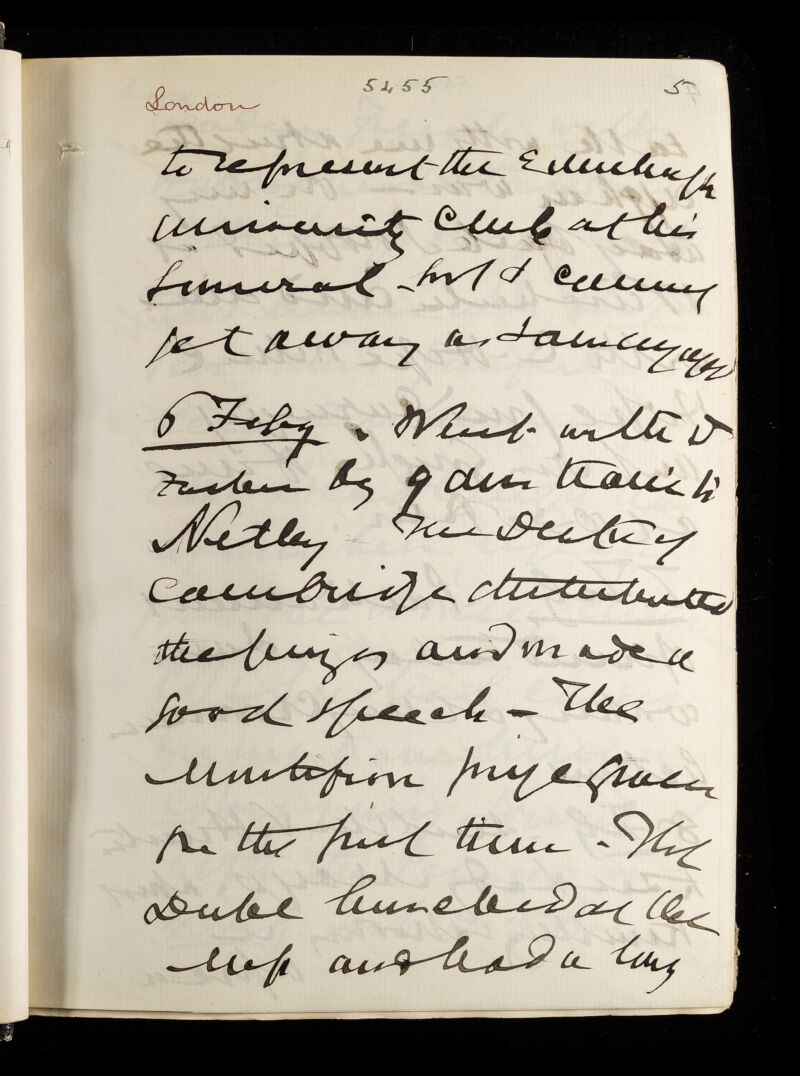 5455
5
London
to represent the Edinburgh
University Club at his
funeral - but I cannot
get away as I am engaged
6 Feby. Went with Dr
by 9 am train to
Netley - The Duke of
Cambridge distributed
the prizes and made a
good speech - The
Montefiore prize given
for the first time - The
Duke lunched at the
Mess and had a long